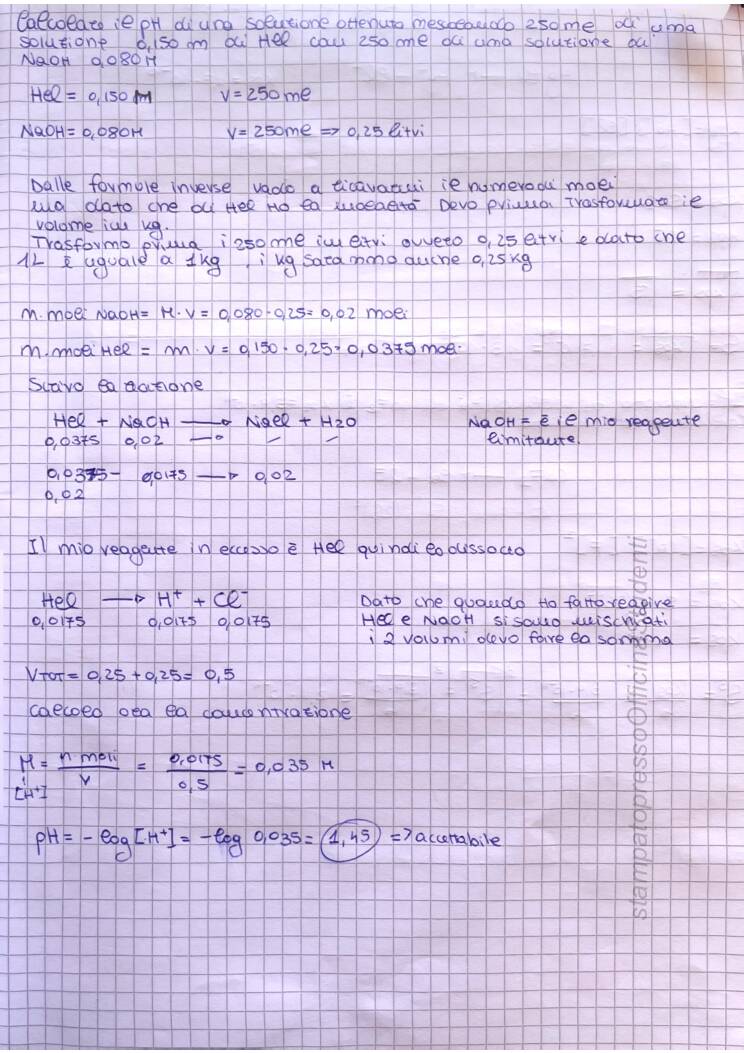 Calcolare il pH di una soluzione ottenuta mescolando 250 ml di una
soluzione 0,150 m di HCl con 250 ml di una soluzione di
NaOH 0,080M
HCl = 0,150 m V = 250ml
NaOH = 0,080M V = 250ml => 0,25 litri
Dalle formule inverse vado a ricavarmi il numero di moli
ma dato che di HCl Ho la molalità Devo prima Trasformare il
volume in kg.
Trasformo prima i 250 ml in litri ovvero 0,25 litri e dato che
1L è uguale a 1kg, i kg saranno anche 0,25 kg
n. moli NaOH = M · V = 0,080 · 0,25 = 0,02 moli
n. moli HCl = m · V = 0,150 · 0,25 = 0,0375 mol.
Scrivo la reazione
HCl + NaOH → NaCl + H2O NaOH = è il mio reagente
0,0375 0,02 → – – limitante.
0,0375 – 0,0175 → 0,02
0,02
Il mio reagente in eccesso è HCl quindi lo dissocio
HCl → H⁺ + Cl⁻ Dato che quando Ho fatto reagire
0,0175 0,0175 0,0175 HCl e NaOH si sono mischiati
i 2 volumi devo fare la somma
VTOT = 0,25 + 0,25 = 0,5
Calcolo ora la concentrazione
M = n moli / V = 0,0175 / 0,5 = 0,035 M
[H⁺]
pH = – log [H⁺] = – log 0,035 = 1,45 => accettabile
stampatopressoOfficinaStudenti